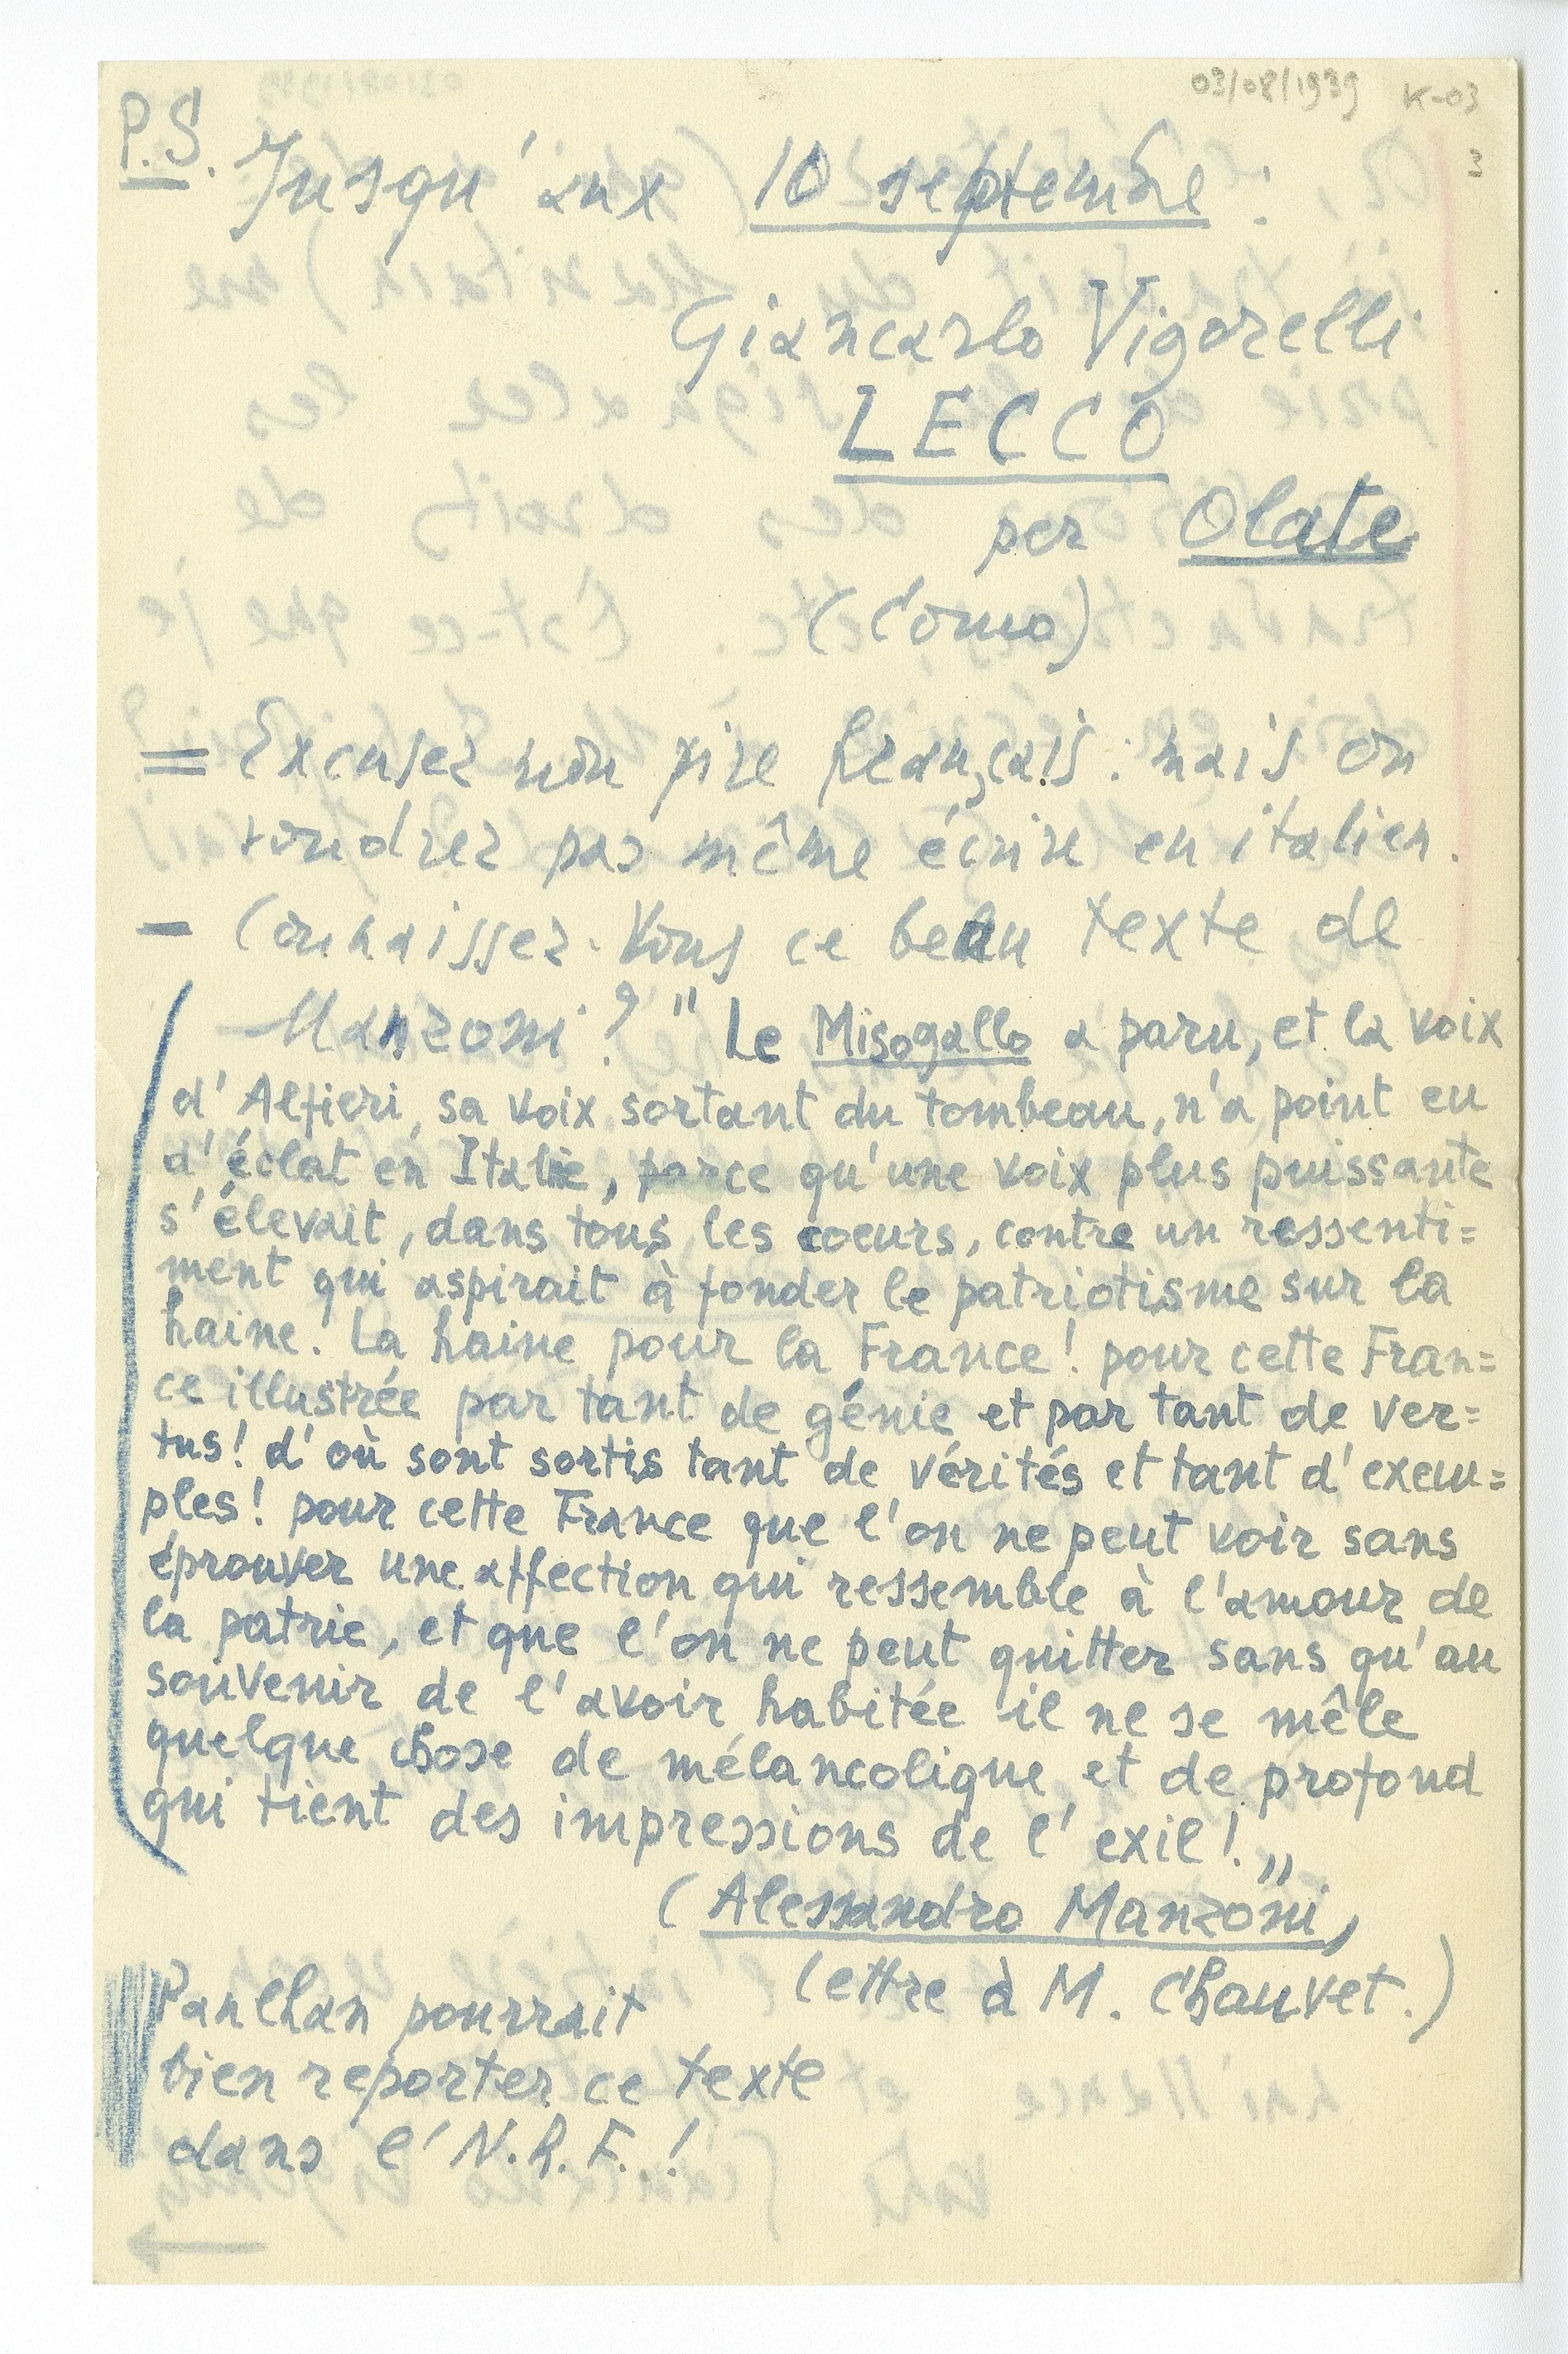 03/08/1939 K-03
3
P.S. Jusqu'aux 10 septembre :
Giancarlo Vigorelli
LECCO
per Olate
(Como)
= Excusez mon pire français : mais on
voudrez pas même écrire en italien.
- Connaissez-Vous ce beau texte de
Manzoni ? " Le Misogallo a paru, et la voix
d'Alfieri, sa voix sortant du tombeau, n'a point eu
d'éclat en Italie, parce qu'une voix plus puissante
s'élevait, dans tous les coeurs, contre un ressenti=
ment qui aspirait à fonder le patriotisme sur la
haine. La haine pour la France ! pour cette Fran=
ce illustrée par tant de génie et par tant de ver=
tus ! d'où sont sortis tant de vérités et tant d'exem=
ples ! pour cette France que l'on ne peut voir sans
éprouver une affection qui ressemble à l'amour de
la patrie, et que l'on ne peut quitter sans qu'au
souvenir de l'avoir habitée il ne se mêle
quelque chose de mélancolique et de profond
qui tient des impressions de l'exil ! „
(Alessandro Manzoni,
lettre à M. Chauvet.)
Paulhan pourrait
bien reporter ce texte
dans l'N.R.F. !